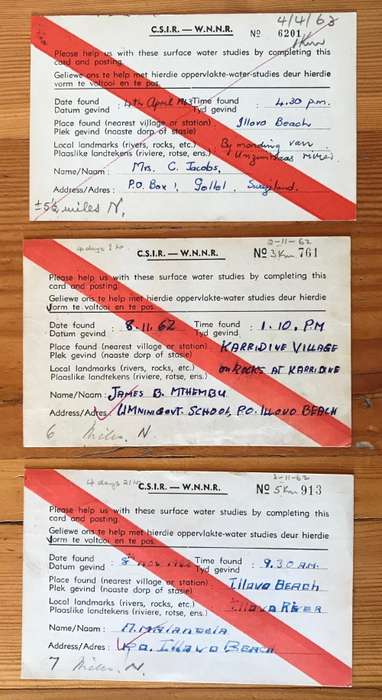 4/4/63
C.S.I.R. — W.N.N.R.
Nº 6201
1 Km
Please help us with these surface water studies by completing this
card and posting.
Geliewe ons te help met hierdie oppervlakte-water-studies deur hierdie
vorm te voltooi en te pos.
Date found
Datum gevind : 4th April 1963
Time found
Tyd gevind : 4.30 p.m.
Place found (nearest village or station)
Plek gevind (naaste dorp of stasie) Illovo Beach
Local landmarks (rivers, rocks, etc.)
Plaaslike landtekens (riviere, rotse, ens.) : By monding van
rivier.
Name/Naam : Mrs. C. Jacobs,
Address/Adres : P.O. Box 1, Gollel, Swaziland.
miles N,
4 days 2 hr
2-11-62
C.S.I.R. — W.N.N.R.
Nº 3 Km 761
Please help us with these surface water studies by completing this
card and posting.
Geliewe ons te help met hierdie oppervlakte-water-studies deur hierdie
vorm te voltooi en te pos.
Date found
Datum gevind : 8.11.62
Time found
Tyd gevind : 1.10. P.M
Place found (nearest village or station)
Plek gevind (naaste dorp of stasie) KARRIDINE VILLAGE
Local landmarks (rivers, rocks, etc.)
Plaaslike landtekens (riviere, rotse, ens.) : ON ROCKS AT KARRIDINE
Name/Naam : JAMES B. MTHEMBU
Address/Adres : UMNINI GOVT. SCHOOL, P.O. ILLOVO BEACH
6 Miles. N
4 days 21 hr
2-11-62
C.S.I.R. — W.N.N.R.
Nº 5 Km 913
Please help us with these surface water studies by completing this
card and posting.
Geliewe ons te help met hierdie oppervlakte-water-studies deur hierdie
vorm te voltooi en te pos.
Date found
Datum gevind : 8th Nov
Time found
Tyd gevind : 9.30 AM.
Place found (nearest village or station)
Plek gevind (naaste dorp of stasie) : Illovo BEACH
Local landmarks (rivers, rocks, etc.)
Plaaslike landtekens (riviere, rotse, ens.) : Illovo RIVER
Name/Naam :
Address/Adres : P.O. Illovo BEACH
7 Miles. N.